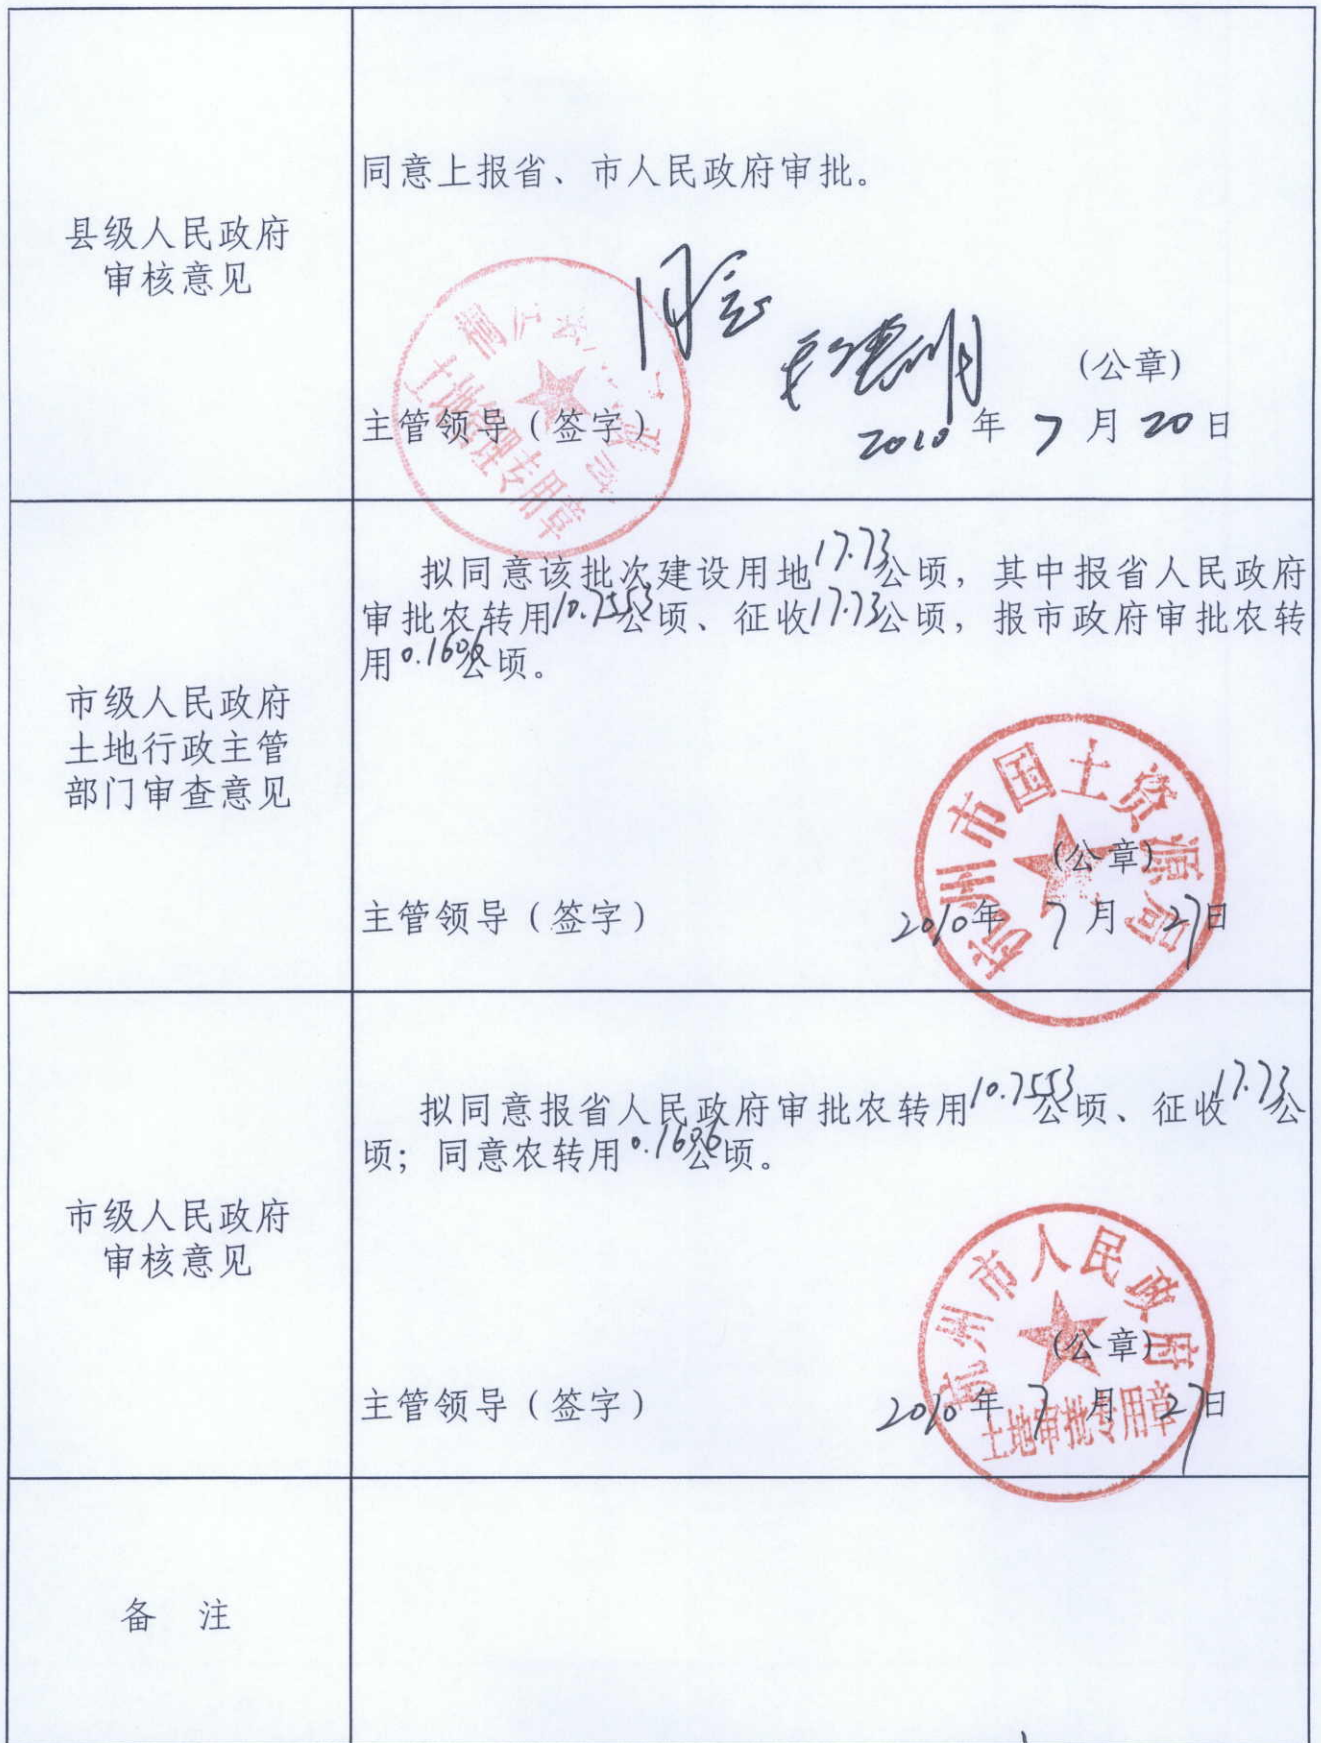 县级人民政府
审核意见
同意上报省、市人民政府审批。
同意
主管领导（签字）
(公章)
2010年 7月 20日
土地管理专用章
市级人民政府
土地行政主管
部门审查意见
拟同意该批次建设用地17.73公顷，其中报省人民政府
审批农转用10.7553公顷、征收17.73公顷，报市政府审批农转
用0.1606公顷。
杭州市国土资源局
(公章)
主管领导（签字）
2010年 7月 27日
市级人民政府
审核意见
拟同意报省人民政府审批农转用10.7553公顷、征收17.73公
顷；同意农转用0.1606公顷。
杭州市人民政府
(公章)
主管领导（签字）
2010年 7月 27日
土地审批专用章
备 注